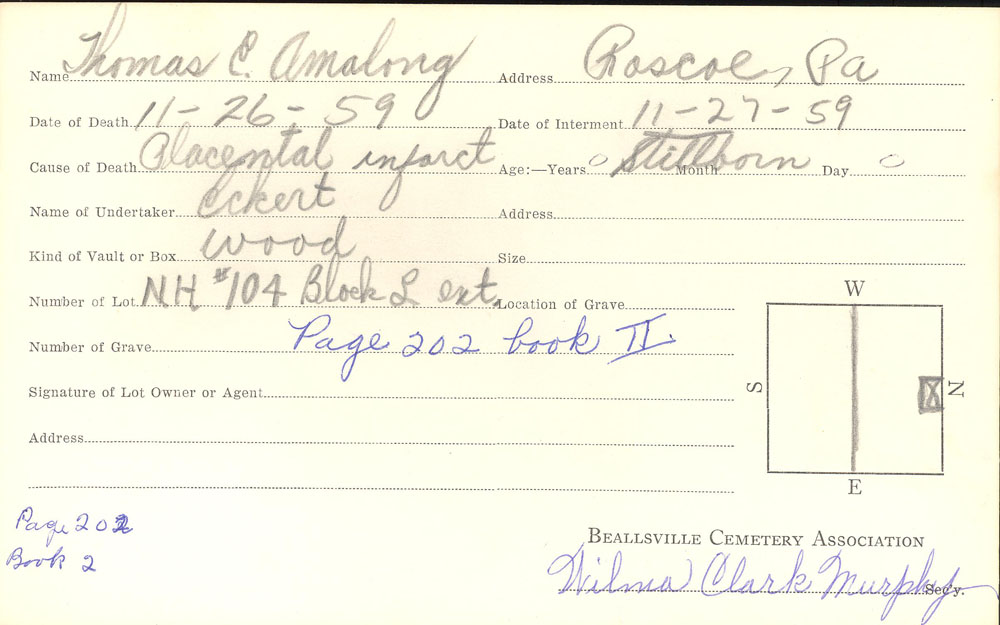 Name Thomas C. Amalong Address Roscoe, Pa
Date of Death 11-26-59 Date of Interment 11-27-59
Cause of Death Placental infarct Age:—Years 0 Stillborn Month Day 0
Name of Undertaker Eckert Address
Kind of Vault or Box wood Size
Number of Lot NH #104 Block L ext. Location of Grave
Number of Grave Page 202 book II.
Signature of Lot Owner or Agent
Address
W
S
X
N
E
Page 202
Book 2
BEALLSVILLE CEMETERY ASSOCIATION
Wilma Clark Murphy Sec'y.